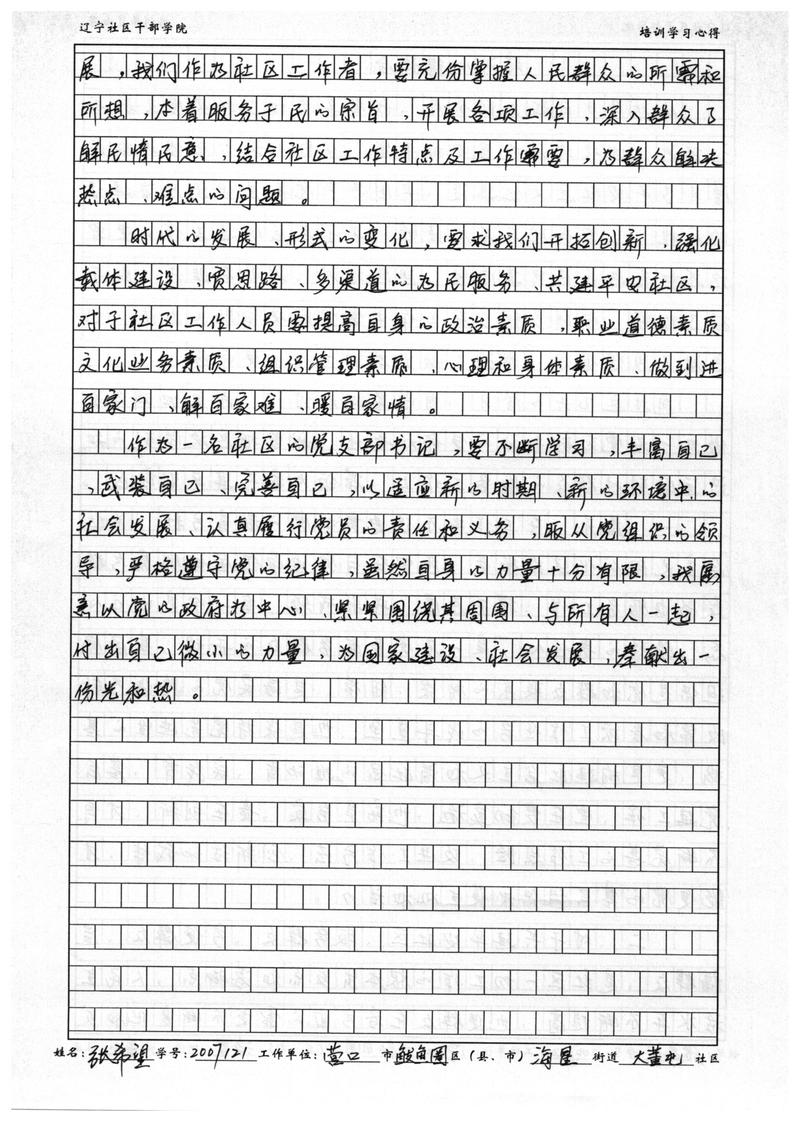 辽宁社区干部学院 培训学习心得
展，我们作为社区工作者，要充份掌握人民群众的所需和
所想，本着服务于民的宗旨，开展各项工作，深入群众了
解民情民意、结合社区工作特点及工作需要，为群众解决
热点、难点的问题。
时代的发展、形式的变化，要求我们开拓创新、强化
载体建设、贯思路、多渠道的为民服务、共建平安社区，
对于社区工作人员需提高自身的政治素质，职业道德素质
文化业务素质、组织管理素质、心理和身体素质、做到进
百家门、解百家难、暖百家情。
作为一名社区的党支部书记，要不断学习，丰富自己
，武装自己、完善自己，以适应新的时期、新的环境中的
社会发展、认真履行党员的责任和义务，服从党组织的领
导，严格遵守党的纪律，虽然自身的力量十分有限，我愿
意以党的政府为中心、紧紧围绕其周围、与所有人一起，
付出自己微小的力量，为国家建设、社会发展，奉献出一
份光和热。
姓名：张希望 学号：2007121 工作单位：营口 市 鲅鱼圈 区（县、市） 海星 街道 大董屯 社区